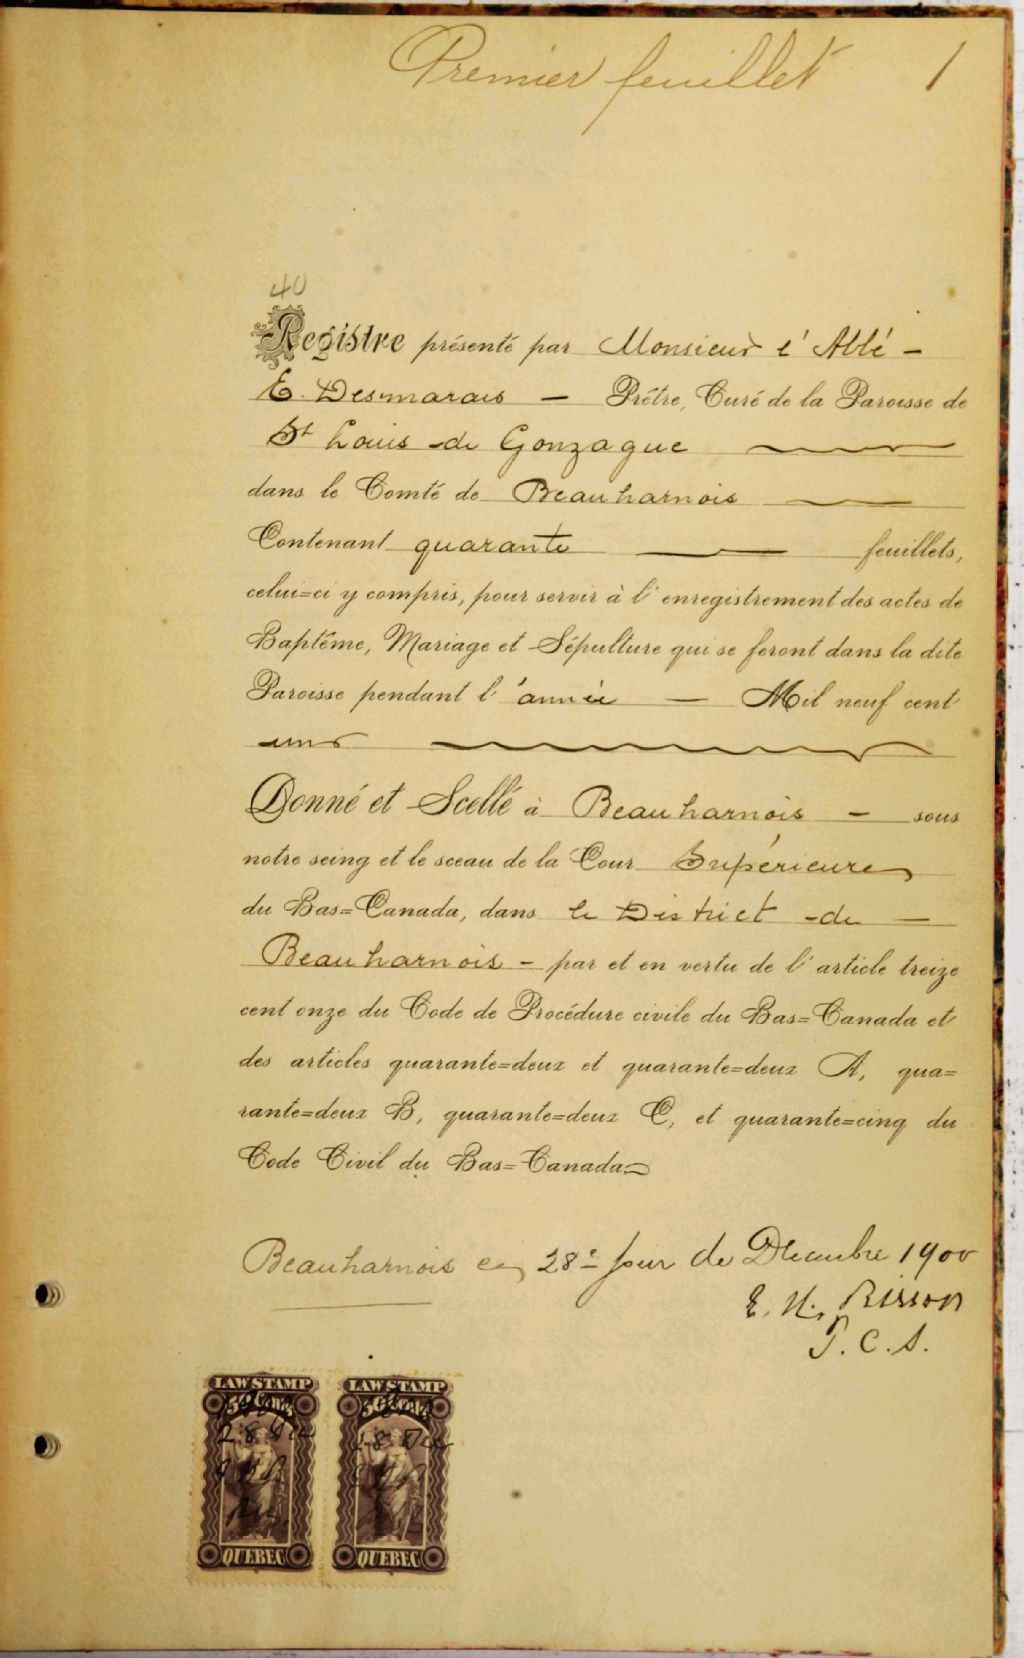 Premier feuillet 1
40
Registre présenté par Monsieur l'Abbé –
E. Desmarais – Prêtre, Curé de la Paroisse de
St Louis de Gonzague
dans le Comté de Beauharnois
Contenant quarante feuillets,
celui=ci y compris, pour servir à l'enregistrement des actes de
Baptême, Mariage et Sépulture qui se feront dans la dite
Paroisse pendant l'année – Mil neuf cent
un
Donné et Scellé à Beauharnois – sous
notre seing et le sceau de la Cour Supérieure
du Bas=Canada, dans le District de –
Beauharnois – par et en vertu de l'article treize
cent onze du Code de Procédure civile du Bas=Canada et
des articles quarante=deux et quarante=deux A, qua=
rante=deux B, quarante=deux C, et quarante=cinq du
Code Civil du Bas=Canada
Beauharnois ce 28e jour de Décembre 1900
E. H. Bisson
P. C. S.
LAW STAMP LAW STAMP
28 Dec 28 Dec
QUEBEC QUEBEC